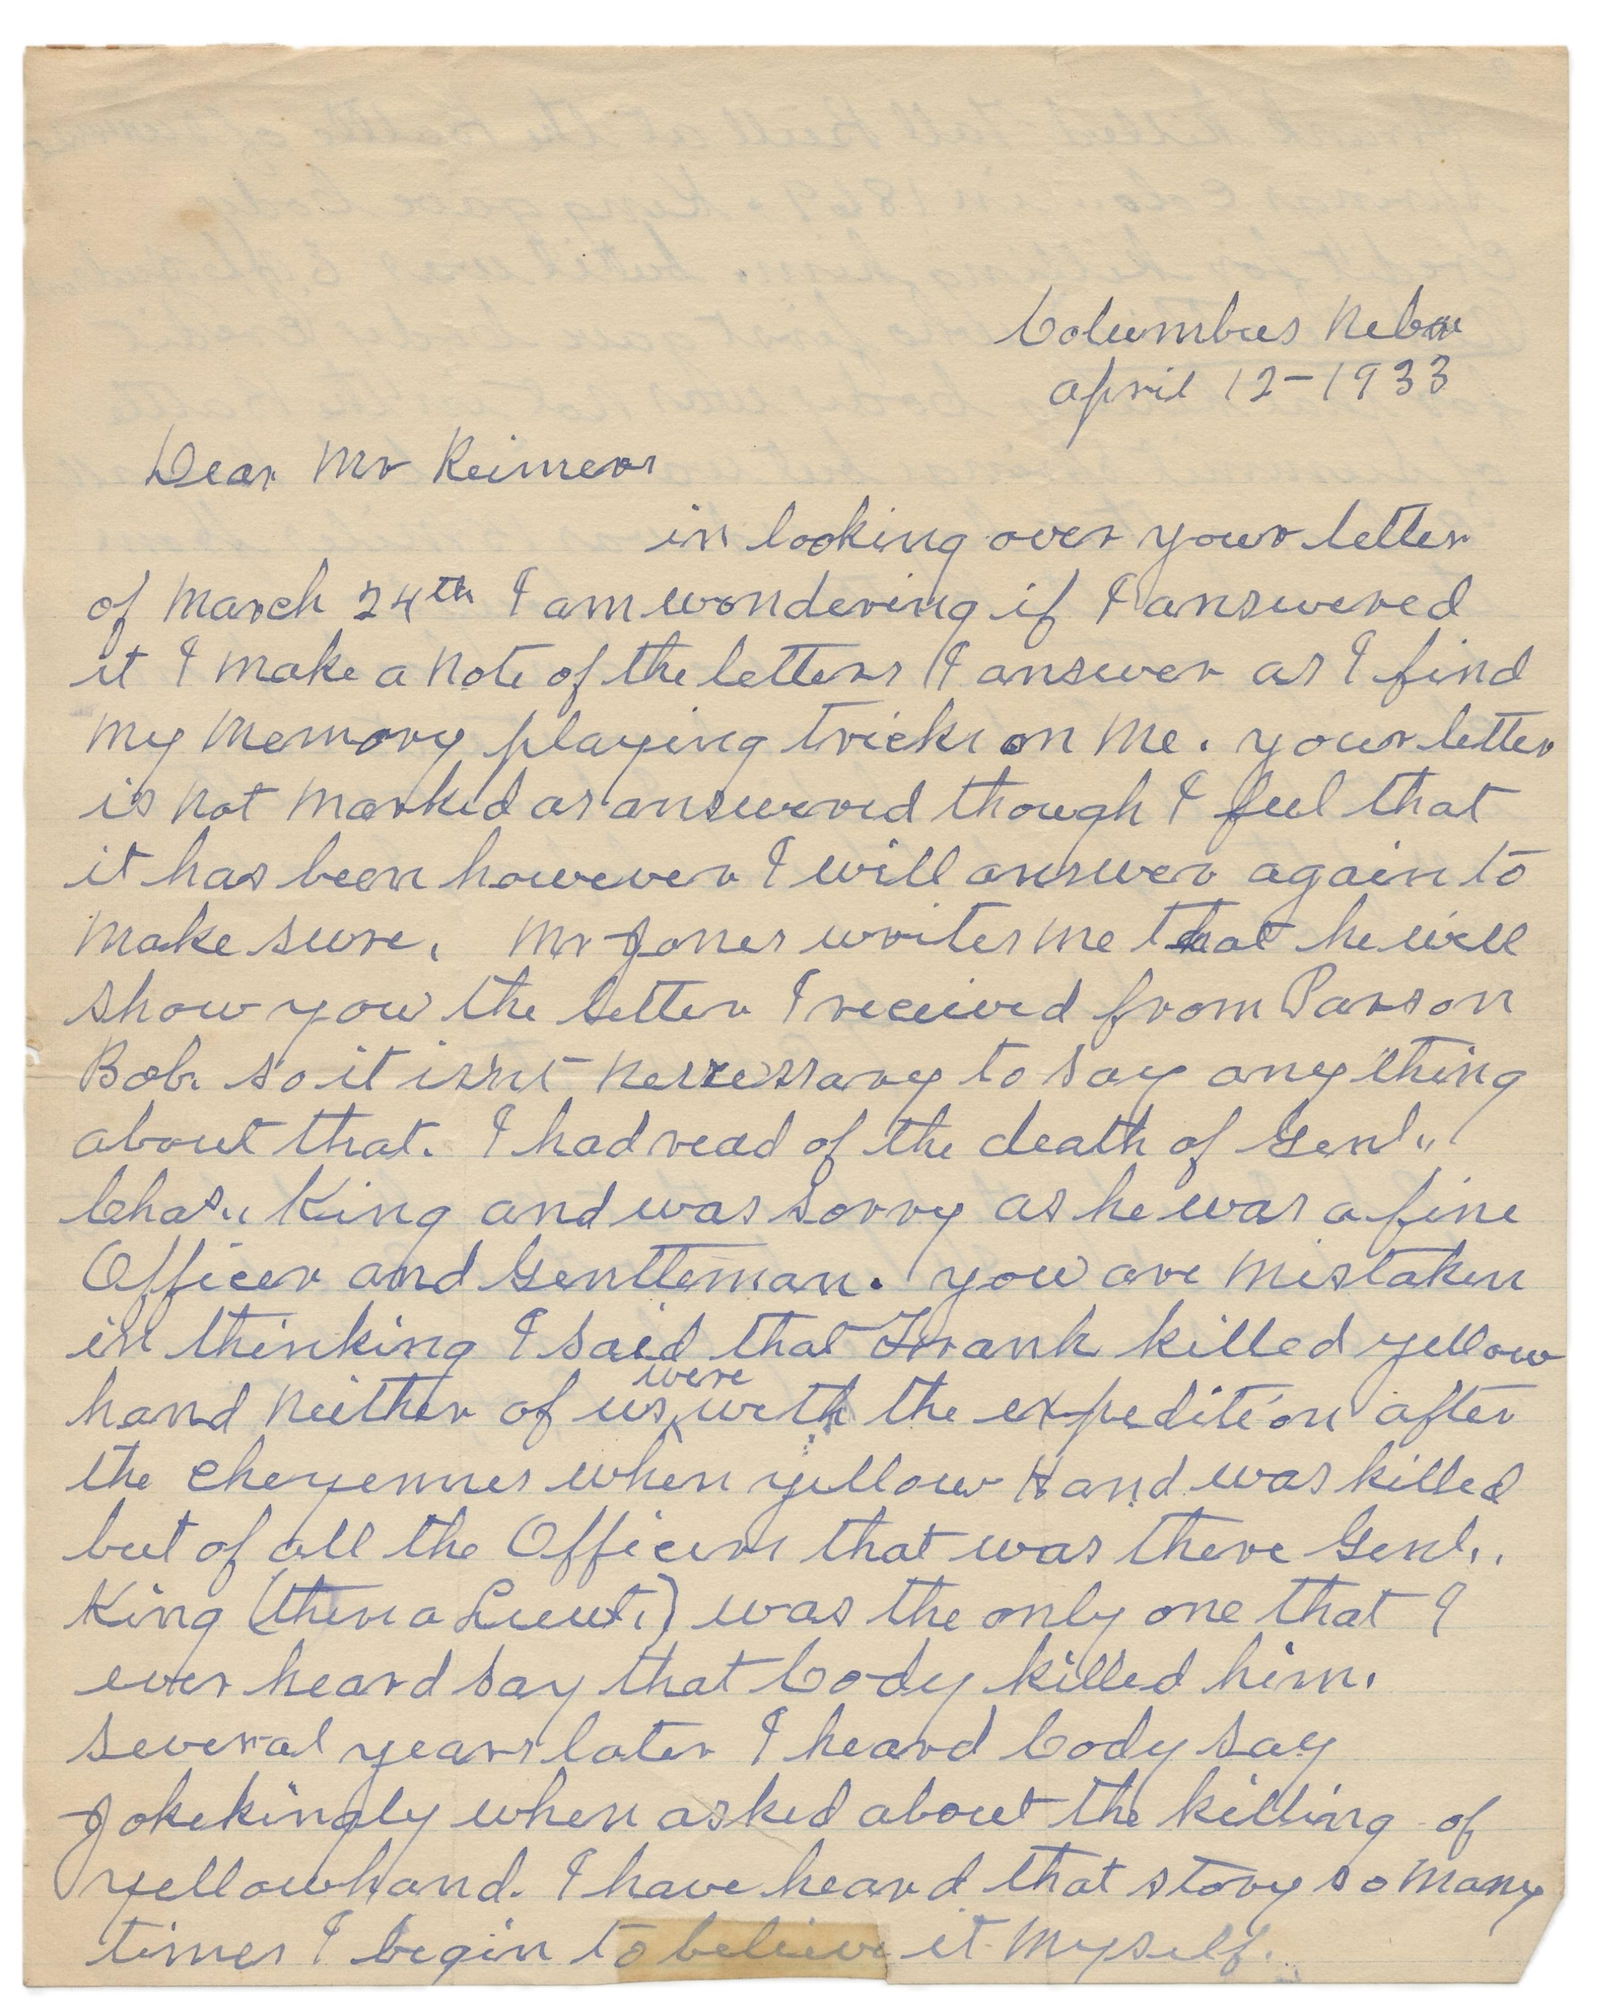 Columbus Nebr
April 12-1933
Dear Mr Reimers
in looking over your letter
of March 24th I am wondering if I answered
it I make a note of the letters I answer as I find
my memory playing tricks on me. your letter
is not marked as answered though I feel that
it has been however I will answer again to
make sure. Mr Jones writes me that he will
show you the letter I received from Parson
Bob. so it isnt necessary to say any thing
about that. I had read of the death of Genl.,
Chas., King and was sorry as he was a fine
Officer and Gentleman. you are mistaken
in thinking I said that Frank killed yellow
hand neither of us were with the expedition after
the Cheyennes when yellow Hand was killed
but of all the Officers that was there Genl..
King (then a Lieut.) was the only one that I
ever heard say that Cody killed him.
several years later I heard Cody say
Jokekingly when asked about the killing of
yellowhand. I have heard that story so many
times I begin to believe it myself.